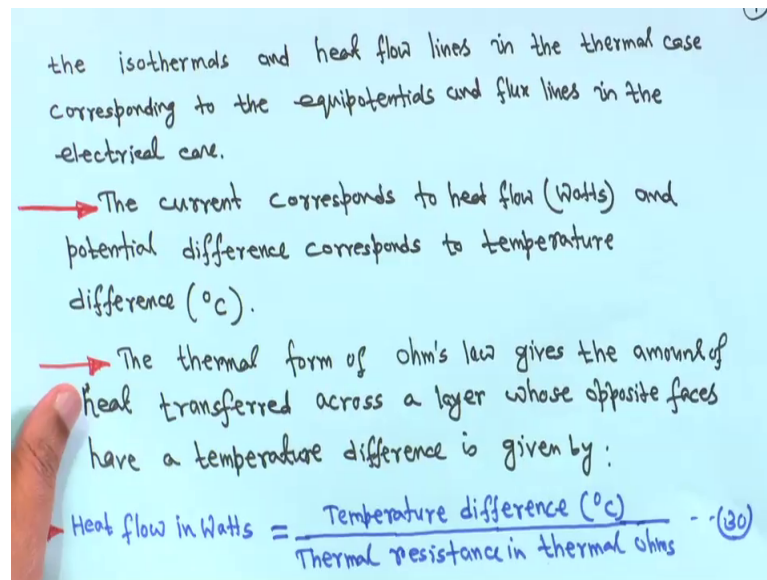 the isothermals and heat flow lines in the thermal case
corresponding to the equipotentials and flux lines in the
electrical case.
The current corresponds to heat flow (Watts) and
potential difference corresponds to temperature
difference (°c).
The thermal form of ohm's law gives the amount of
heat transferred across a layer whose opposite faces
have a temperature difference is given by :
Heat flow in Watts = Temperature difference (°c) / Thermal resistance in thermal ohms --(30)